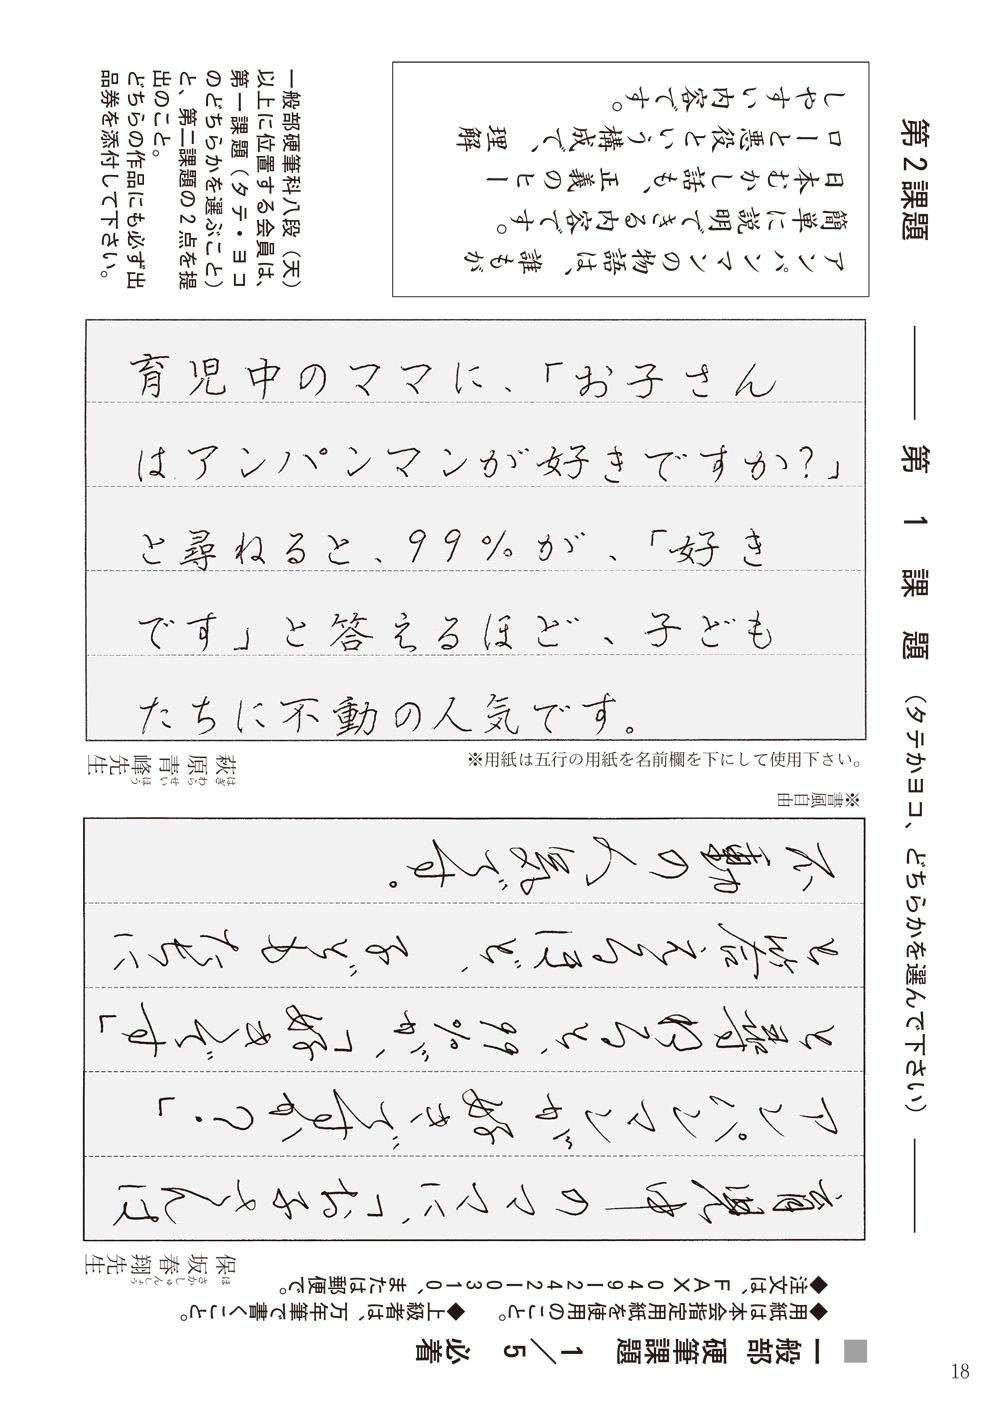 ■ 一般部 硬筆課題　1／5　必着
◆用紙は本会指定用紙を使用のこと。　◆上級者は、万年筆で書くこと。
◆注文は、FAX 0491242110310、または郵便で。
第1課題（タテかヨコ、どちらかを選んで下さい）
保坂春翔先生
ほさかしゅんしょう
育児中のママに、「お子さんは
アンパンマンが好きですか？」
と尋ねると、99％が、「好きです」
と答えるほど、子どもたちに
不動の人気です。
※書風自由
※用紙は五行の用紙を名前欄を下にして使用下さい。
萩原青峰先生
はぎわらせいほう
育児中のママに、「お子さん
はアンパンマンが好きですか?」
と尋ねると、99%が、「好き
です」と答えるほど、子ども
たちに不動の人気です。
第2課題
アンパンマンの物語は、誰もが
簡単に説明できる内容です。
日本むかし話も、正義のヒー
ローと悪役という構成で、理解
しやすい内容です。
一般部硬筆科八段（天）
以上に位置する会員は、
第一課題（タテ・ヨコ
のどちらかを選ぶこと）
と、第二課題の2点を提
出のこと。
どちらの作品にも必ず出
品券を添付して下さい。
18